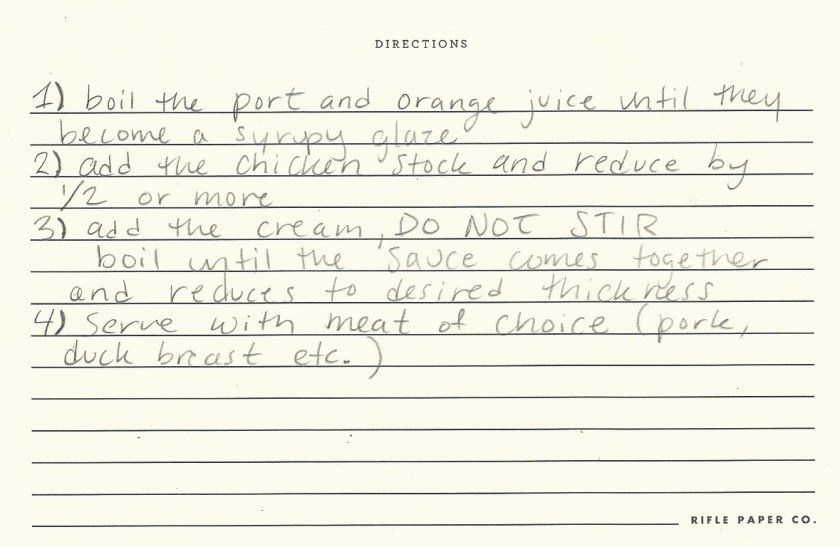 DIRECTIONS
1) boil the port and orange juice until they
become a syrupy glaze
2) add the chicken stock and reduce by
1/2 or more
3) add the cream, DO NOT STIR
boil until the sauce comes together
and reduces to desired thickness
4) Serve with meat of choice (pork,
duck breast etc.)
RIFLE PAPER CO.